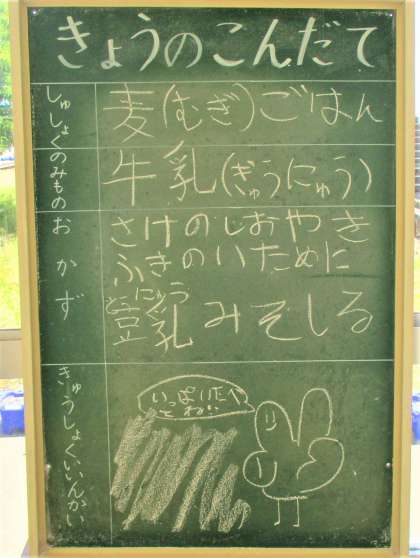 きょうのこんだて
しゅしょく
麦(むぎ)ごはん
のみもの
牛乳(ぎゅうにゅう)
おかず
さけのしおやき
ふきのいために
とうにゅう
豆乳みそしる
きゅうしょくいいんかい
いっぱいたべ
てねい